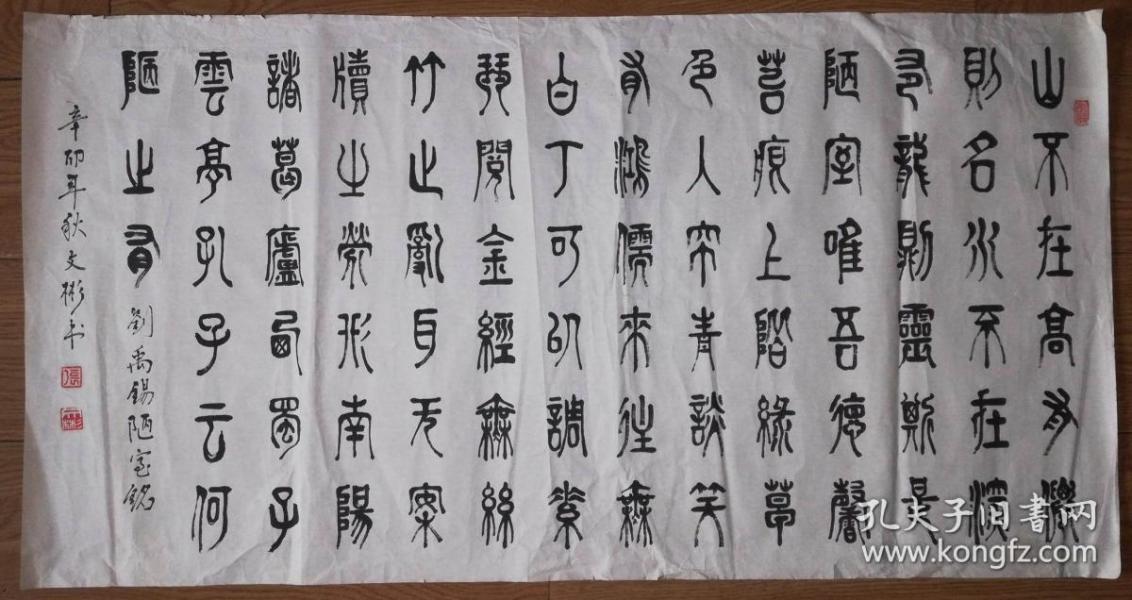 山不在高有僊
則名水不在深
有龍則靈斯是
陋室唯吾德馨
苔痕上階綠草
色入帘青談笑
有鴻儒來往無
白丁可以調素
琴閱金經無絲
竹之亂耳无案
牘之勞形南陽
諸葛廬西蜀子
雲亭孔子云何
陋之有
劉禹錫陋室銘
辛卯年秋文彬书
張
孔夫子旧书网
www.kongfz.com